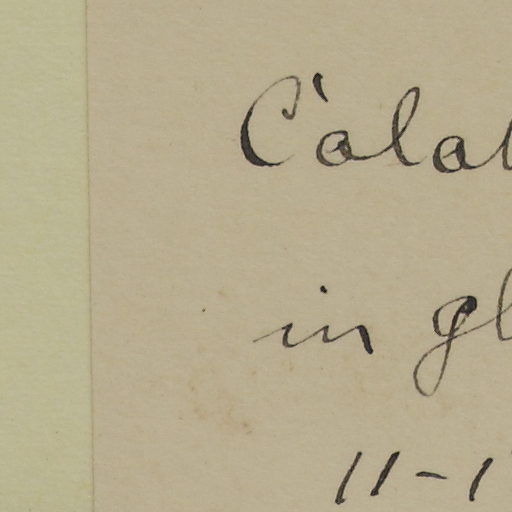 Calab
in gl
11-1